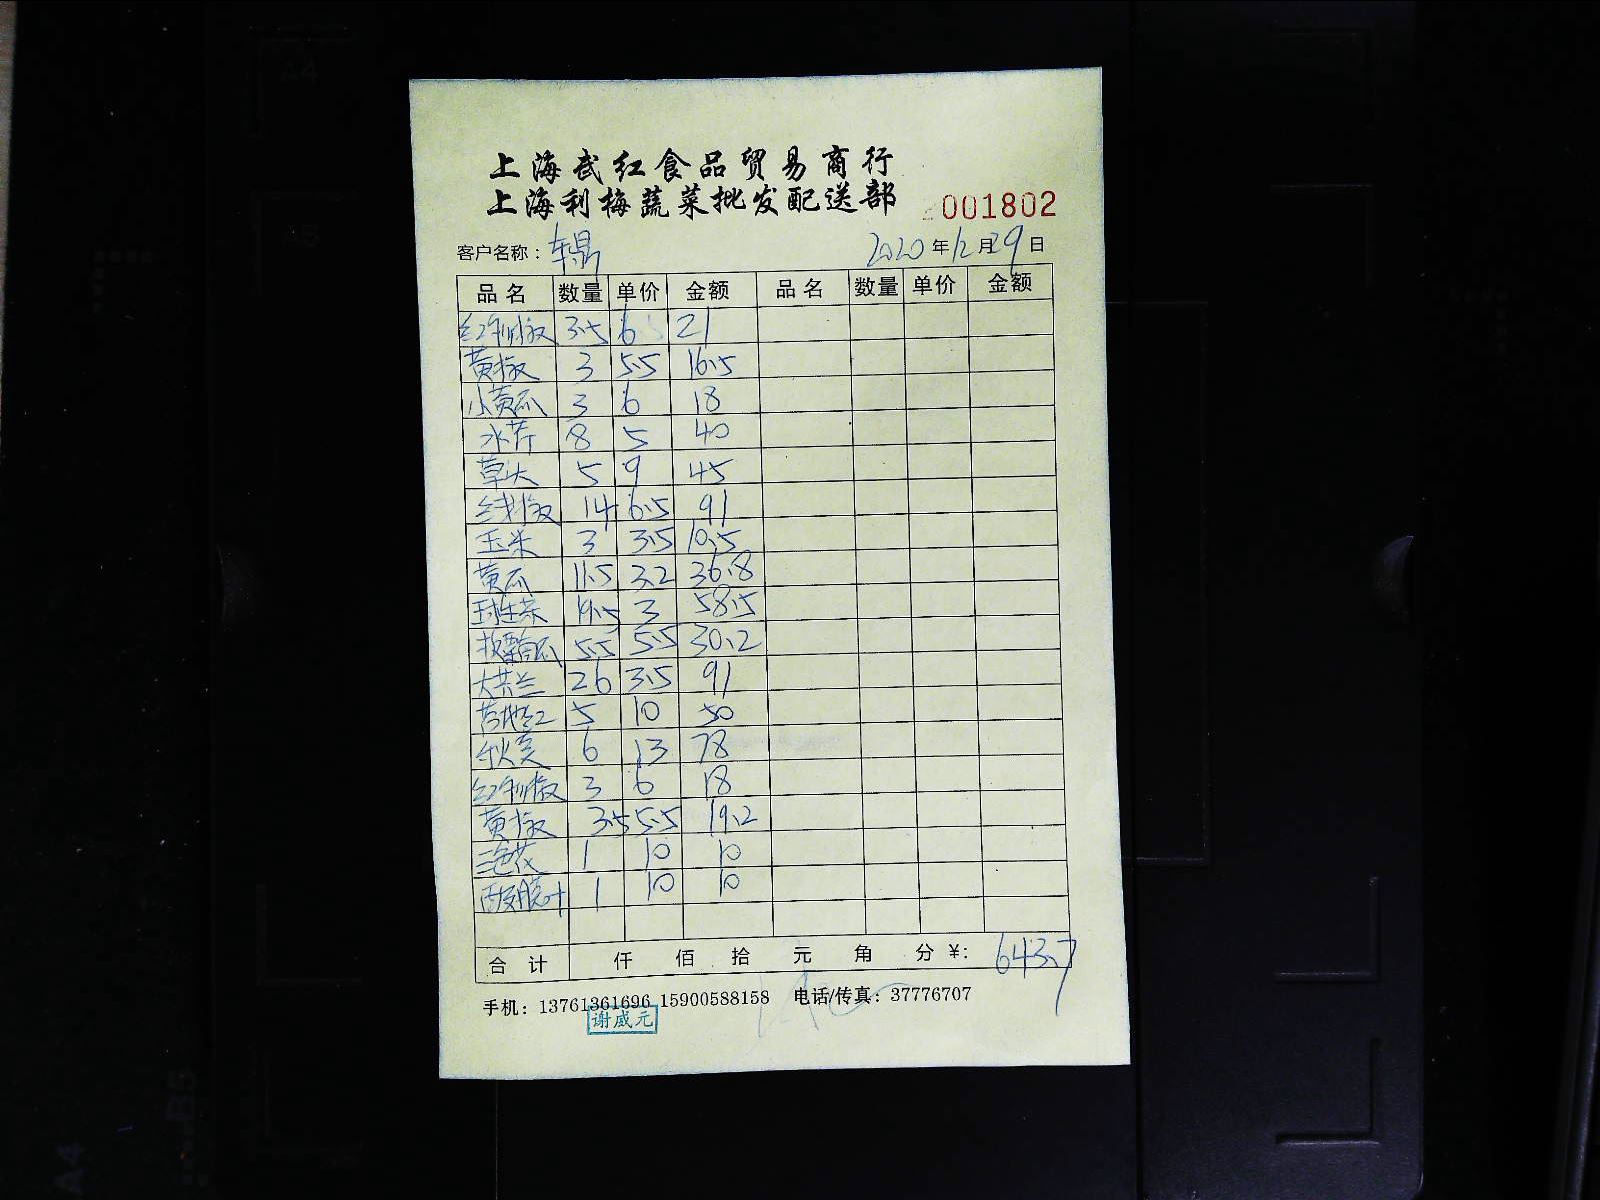 上海武红食品贸易商行
上海利梅蔬菜批发配送部 001802
客户名称： 2020 年 12 月 29 日
品名 数量 单价 金额 品名 数量 单价 金额
3.5 6 21
黄椒 3 5.5 16.5
小黄瓜 3 6 18
水芹 8 5 40
草头 5 9 45
线椒 14 6.5 91
玉米 3 3.5 10.5
黄瓜 11.5 3.2 36.8
球生菜 19.5 3 58.5
板栗南瓜 5.5 5.5 30.2
26 3.5 91
5 10 50
6 13 78
3 6 18
黄椒 3.5 5.5 19.2
三色花 1 10 10
1 10 10
合计 仟 佰 拾 元 角 分 ¥: 643.7
手机：13761361696 15900588158 电话/传真：37776707
谢威元